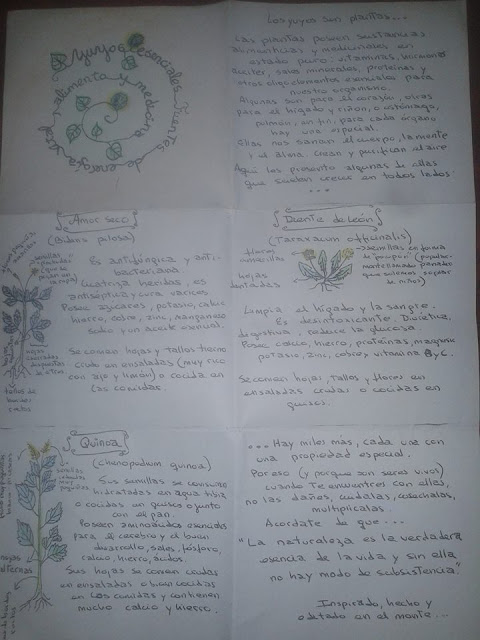 Yuyos esenciales
fuentes de energía vital
alimento y medicina
Los yuyos son plantas...
Las plantas poseen sustancias
alimenticias y medicinales en
estado puro: vitaminas, hormonas
sales minerales, proteínas y
otros oligoelementos esenciales para
nuestro organismo.
Algunas son para el corazón, otras
para el hígado y riñón, o estómago,
pulmón, en fin, para cada órgano
hay una especial.
Ellas nos sanan el cuerpo, la mente
y el alma. Crean y purifican el aire
Aquí les presento algunas de ellas
que suelen crecer en todos lados
...
Amor seco
(Bidens pilosa)
semillas
Es antifúngica y anti-
bacteriana
Cicatriza heridas, es
antiséptica y cura varices
Posee azúcares, potasio, calcio
hierro, cobre, zinc, manganeso
sodio y un aceite esencial.
Se comen hojas y tallos tiernos
crudo en ensaladas (muy rico
con ajo y limón) o cocida en
las comidas.
hojas
tallos de
Diente de León
(Taraxacum officinalis)
flores
amarillas
semillas en forma
de "pompón" (popular-
mente llamado panadero
que solemos soplar
de niños)
hojas
dentadas
Limpia el hígado y la sangre.
Es desintoxicante. Diurética,
digestiva, reduce la glucosa.
Posee calcio, hierro, proteínas, magnesio
potasio, zinc, cobre y vitamina B y C.
Se comen hojas, tallos y flores en
ensaladas crudas o cocidas en
guisos.
Quinoa
(chenopodium quinoa)
semillas
muy
pequeñas
Sus semillas se consumen
hidratadas en agua tibia
o cocidas en guisos o junto
con el pan.
Poseen aminoácidos esenciales
para el cerebro y el buen
desarrollo, sales, fósforo,
calcio, hierro, ácidos.
Sus hojas se comen crudas
en ensaladas o bien cocidas
en las comidas y contienen
mucho calcio y hierro.
hojas
alternas
... Hay miles más, cada una con
una propiedad especial.
Por eso (y porque son seres vivos)
cuando te encuentres con ellas,
no las dañes, cuidalas, cosechalas,
multiplicalas.
Acordate de que...
"La naturaleza es la verdadera
esencia de la vida y sin ella
no hay modo de subsistencia"
Inspirado, hecho y
editado en el monte...